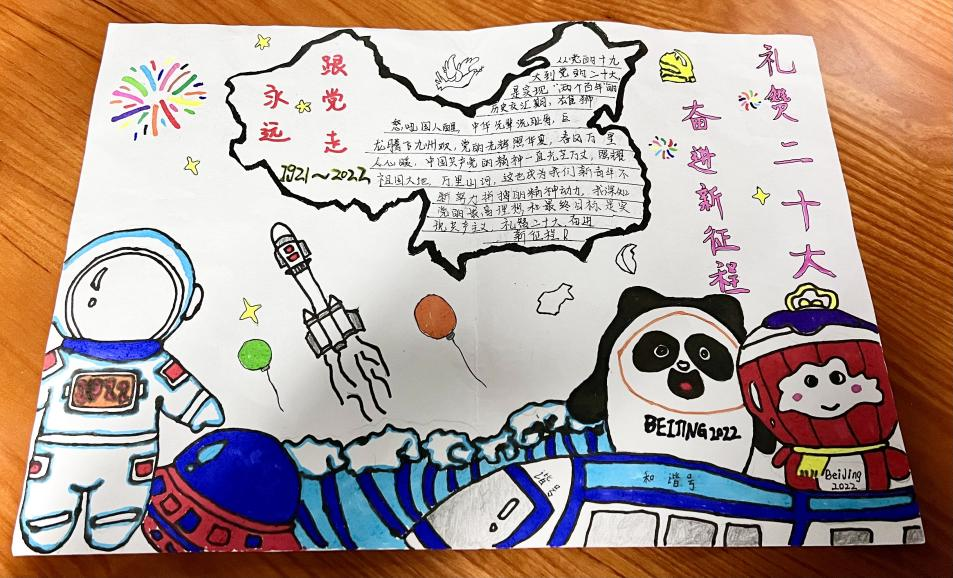 跟党走
永远
1921～2022
从党的十九
大到党的二十大
是实现"两个百年"的
历史交汇期，雄狮
怒吼国人醒，中华先辈流血身，巨
龙腾飞九州欢，党的光辉照华夏，春风万里
人心暖，中国共产党的精神一直光芒万丈，照耀
祖国大地，万里山河，这也成为我们新青年不
断努力拼搏的精神动力，我深知
党的最高理想和最终目标是实
现共产主义，礼赞二十大 奋进
新征程！
礼赞二十大
奋进新征程
2022
BEIJING 2022
Beijing
2022
和谐号